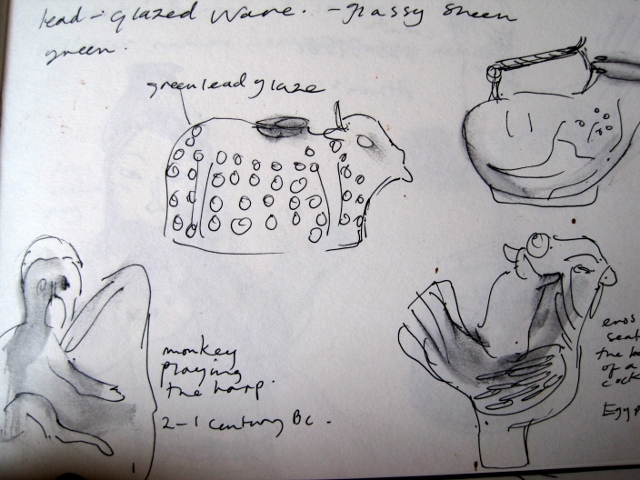 lead-glazed ware. - glassy sheen
green.
green lead glaze
monkey
playing
the harp.
2-1 century BC.
eros
seat
the b
of a
cock
Egyp